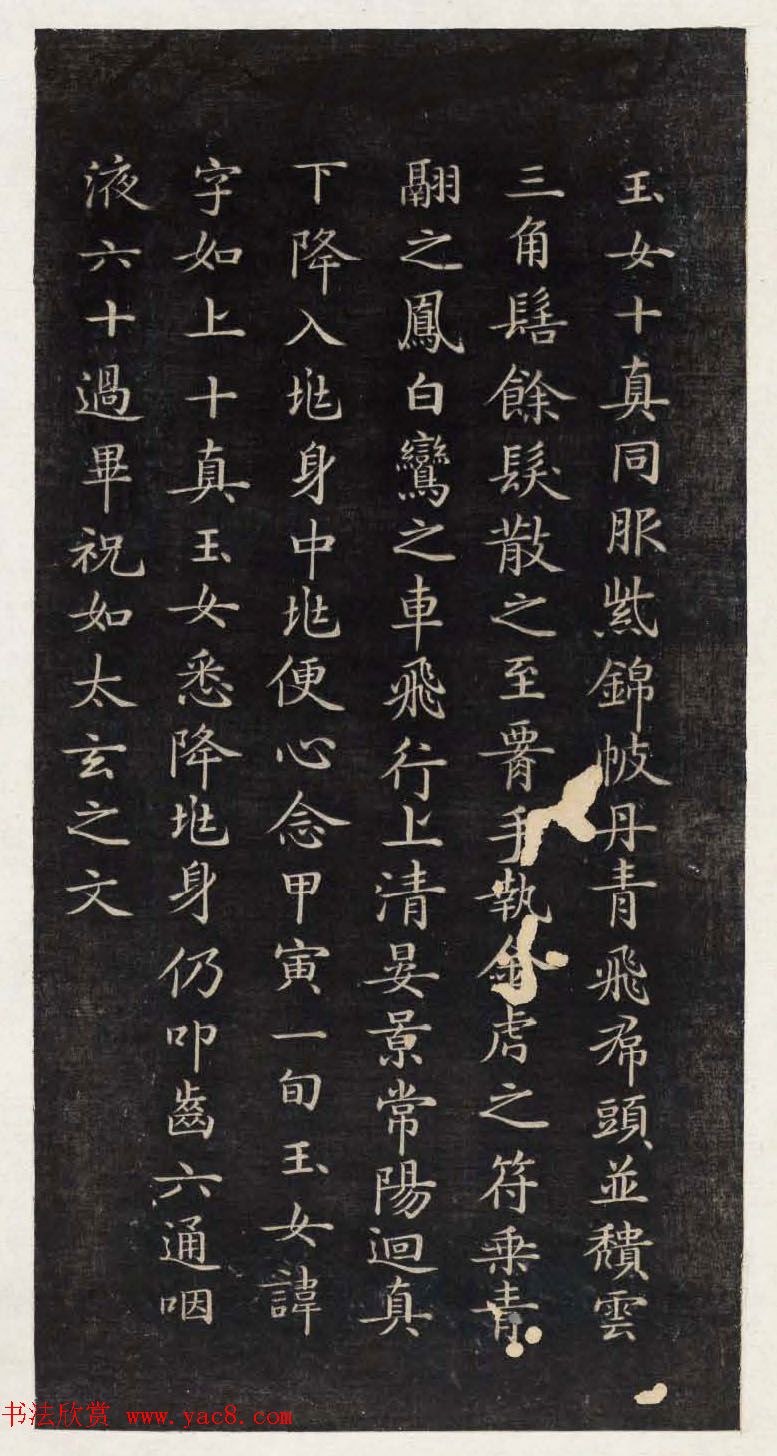 玉女十真同服紫錦帔丹青飛帬頭並穨雲
三角髻餘髮散之至腰手執金虎之符乘青
翮之鳳白鸞之車飛行上清晏景常陽迴真
下降入兆身中兆便心念甲寅一旬玉女諱
字如上十真玉女悉降兆身仍叩齒六通咽
液六十過畢祝如太玄之文
书法欣赏 www.yac8.com